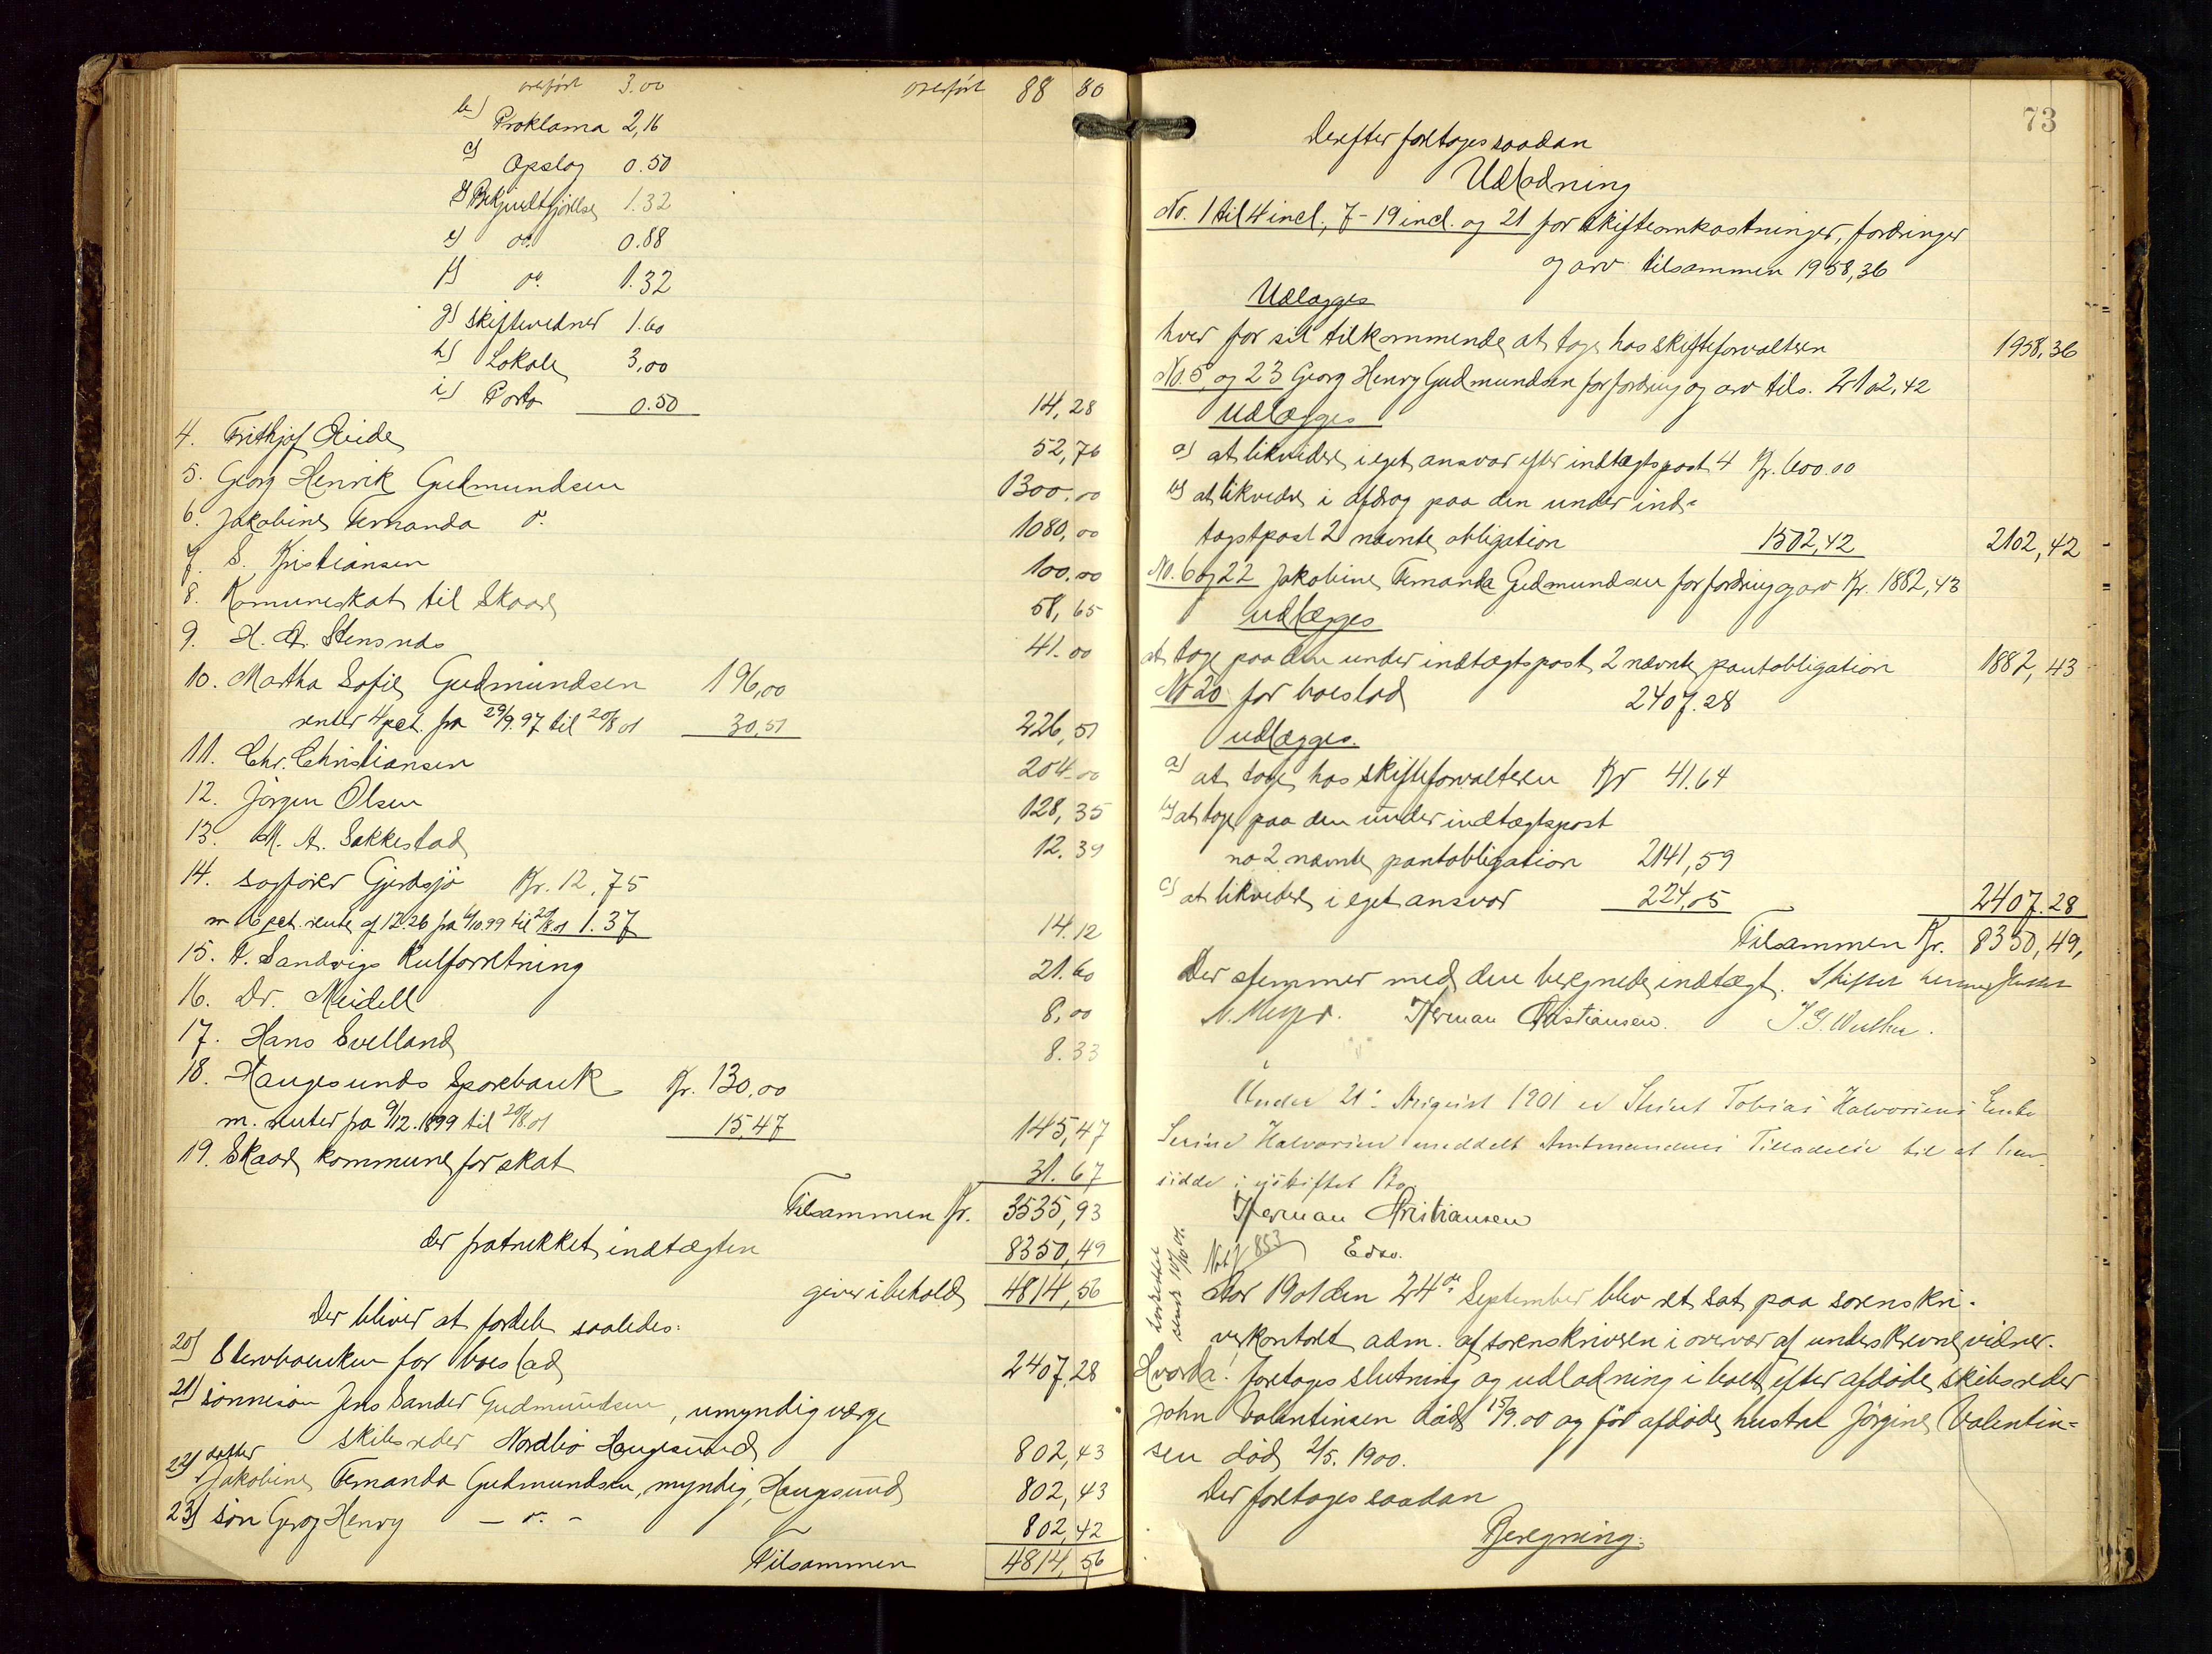 overført 3.00 overført 88 80
b) Proklama 2,16
c) Opslag 0.50
d) Bekjendtgjørelse 1.32
e) do. 0.88
f) do. 1.32
g) skiftevidner 1.60
h) Lokale 3,00
i) Porto 0.50 14,28
4. Frithjof Eide 52,76
5. Georg Henrik Gudmundsen 1300.00
6. Jakobine Fernanda do. 1080,00
7. S. Kristiansen 100.00
8. Komuneskat til Skaare 58,65
9. H. A. Stensnes 41.00
10. Martha Sofie Gudmundsen 196,00
renter 4 pct. fra 29/9.97 til 20/8 01 30,51 226,51
11. Chr. Christiansen 204.00
12. Jørgen Olsen 128,35
13. M. A. Sakkestad 12.39
14. sagfører Gjerdsjø Kr. 12,75
m 6 pct. rente af 12.26 fra 4/10 99 til 20/8.01 1.37 14.12
15. A. Sandvigs Kulforretning 21.60
16. Dr. Meidell 8,00
17. Hans Svelland 8.33
18. Haugesunds Sparebank Kr. 130,00
m. renter fra 9/12.1899 til 20/8.01 15,47 145,47
19. Skaare kommune for skat 31.67
Tilsammen Kr. 3535,93
der fratrukket indtægten 8350,49
giver i behold 4814,56
Der bliver at fordele saaledes:
20) Stervboenken for boeslod 2407,28
21) sønnesøn Jens Sander Gudmundsen, umyndig værge
skibsreder Nordbø Haugesund 802,43
22) datter Jakobine Fernanda Gudmundsen, myndig, Haugesund 802,43
23) søn Georg Henry — do. - 802,42
Tilsammen 4814,56
73
Derefter foretages saadan
Udlodning
No. 1 til 4 incl., 7-19 incl. og 21 for skifteomkostninger, fordringer
og arv tilsammen 1958,36
Udlægges
hver for sit tilkommende at tage hos skifteforvalteren 1958,36
No. 5 og 23 Georg Henry Gudmundsen for fordring og arv tils. 2102,42
Udlægges
a) at likvidere i eget ansvar efter indtægtspost 4 Kr. 600.00
b) at likvidere i afdrag paa den under ind-
tægtspost 2 nævnte obligation 1502,42 2102,42
No. 6 og 22 Jakobine Fernanda Gudmundsen for fordring og arv Kr. 1882,43
udlægges
at tage paa den under indtægtspost 2 nævnte pantobligation 1882,43
No 20 for boeslod 2407.28
udlægges.
a) at tage hos skifteforvalteren Kr 41.64
b) at tage paa den under indtægtspost
no 2 nævnte pantobligation 2141,59
c) at likvidere i eget ansvar 224,05 2407.28
Tilsammen Kr. 8350,49,
Der stemmer med den beregnede indtægt. Skiftet hermed sluttet
N. Meyer. Herman Kristiansen.
Under 21. August 1901 er Sivert Tobias Halvorsens Enke
Serine Halvorsen meddelt Amtmandens Tilladelse til at hen-
sidde i uskiftet Bo.
Herman Kristiansen
Edsv.
Not J 853
Aar 1901 den 24de September blev ret sat paa sorenskri-
verkontoret adm. af sorenskriveren i overvær af underskrevne vidner.
Hvorda! foretages slutning og udlodning i boet efter afdøde skibsreder
John Valentinsen død 15/9.00 og før afdøde hustru Jørgine Valentin-
sen død 2/5. 1900.
Der foretages saadan
Beregning: